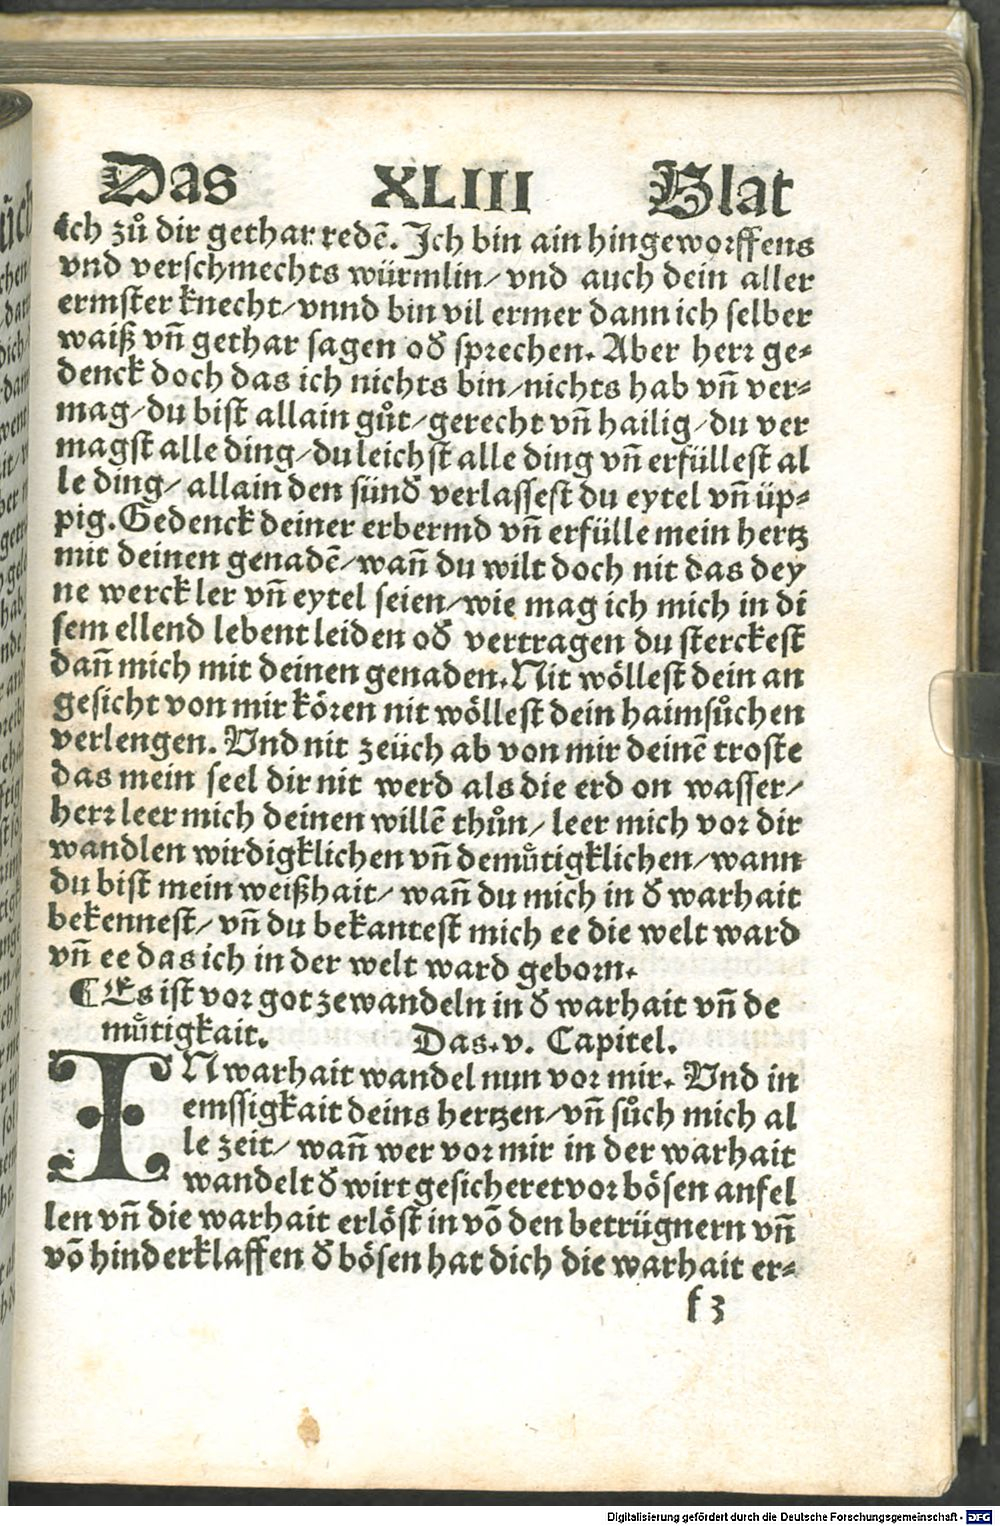 Das XLIII Blat
ich zů dir gethar redē. Ich bin ain hingeworffens
vnd verschmechts würmlin/ vnd auch dein aller
ermster knecht/ vnnd bin vil ermer dann ich selber
waiß vñ gethar sagen ođ sprechen. Aber herr ge⸗
denck doch das ich nichts bin/nichts hab vñ ver⸗
mag/du bist allain gůt/gerecht vñ hailig/du ver
magst alle ding/du leichst alle ding vñ erfüllest al
le ding/ allain den sünđ verlassest du eytel vñ üp⸗
pig. Gedenck deiner erbermd vñ erfülle mein hertz
mit deinen genadē/wañ du wilt doch nit das dey
ne werck ler vñ eytel seien/wie mag ich mich in di
sem ellend lebent leiden ođ vertragen du sterckest
dañ mich mit deinen genaden. Nit wöllest dein an
gesicht von mir kören nit wöllest dein haimsůchen
verlengen. Vnd nit zeüch ab von mir deinē troste
das mein seel dir nit werd als die erd on wasser/
herr leer mich deinen willē thůn/ leer mich vor dir
wandlen wirdigklichen vñ demůtigklichen/wann
du bist mein weißhait/ wañ du mich in đ warhait
bekennest/ vñ du bekantest mich ee die welt ward
vñ ee das ich in der welt ward geborn.
¶Es ist vor got zewandeln in đ warhait vñ de
můtigkait. Das.v. Capitel.
IN warhait wandel nun vor mir. Vnd in
emssigkait deins hertzen/vñ sůch mich al
le zeit/ wañ wer vor mir in der warhait
wandelt đ wirt gesicheret vor bösen anfel
len vñ die warhait erlöst in vō den betrügnern vñ
vō hinderklaffen đ bösen hat dich die warhait er⸗
f 3
Digitalisierung gefördert durch die Deutsche Forschungsgemeinschaft - DFG